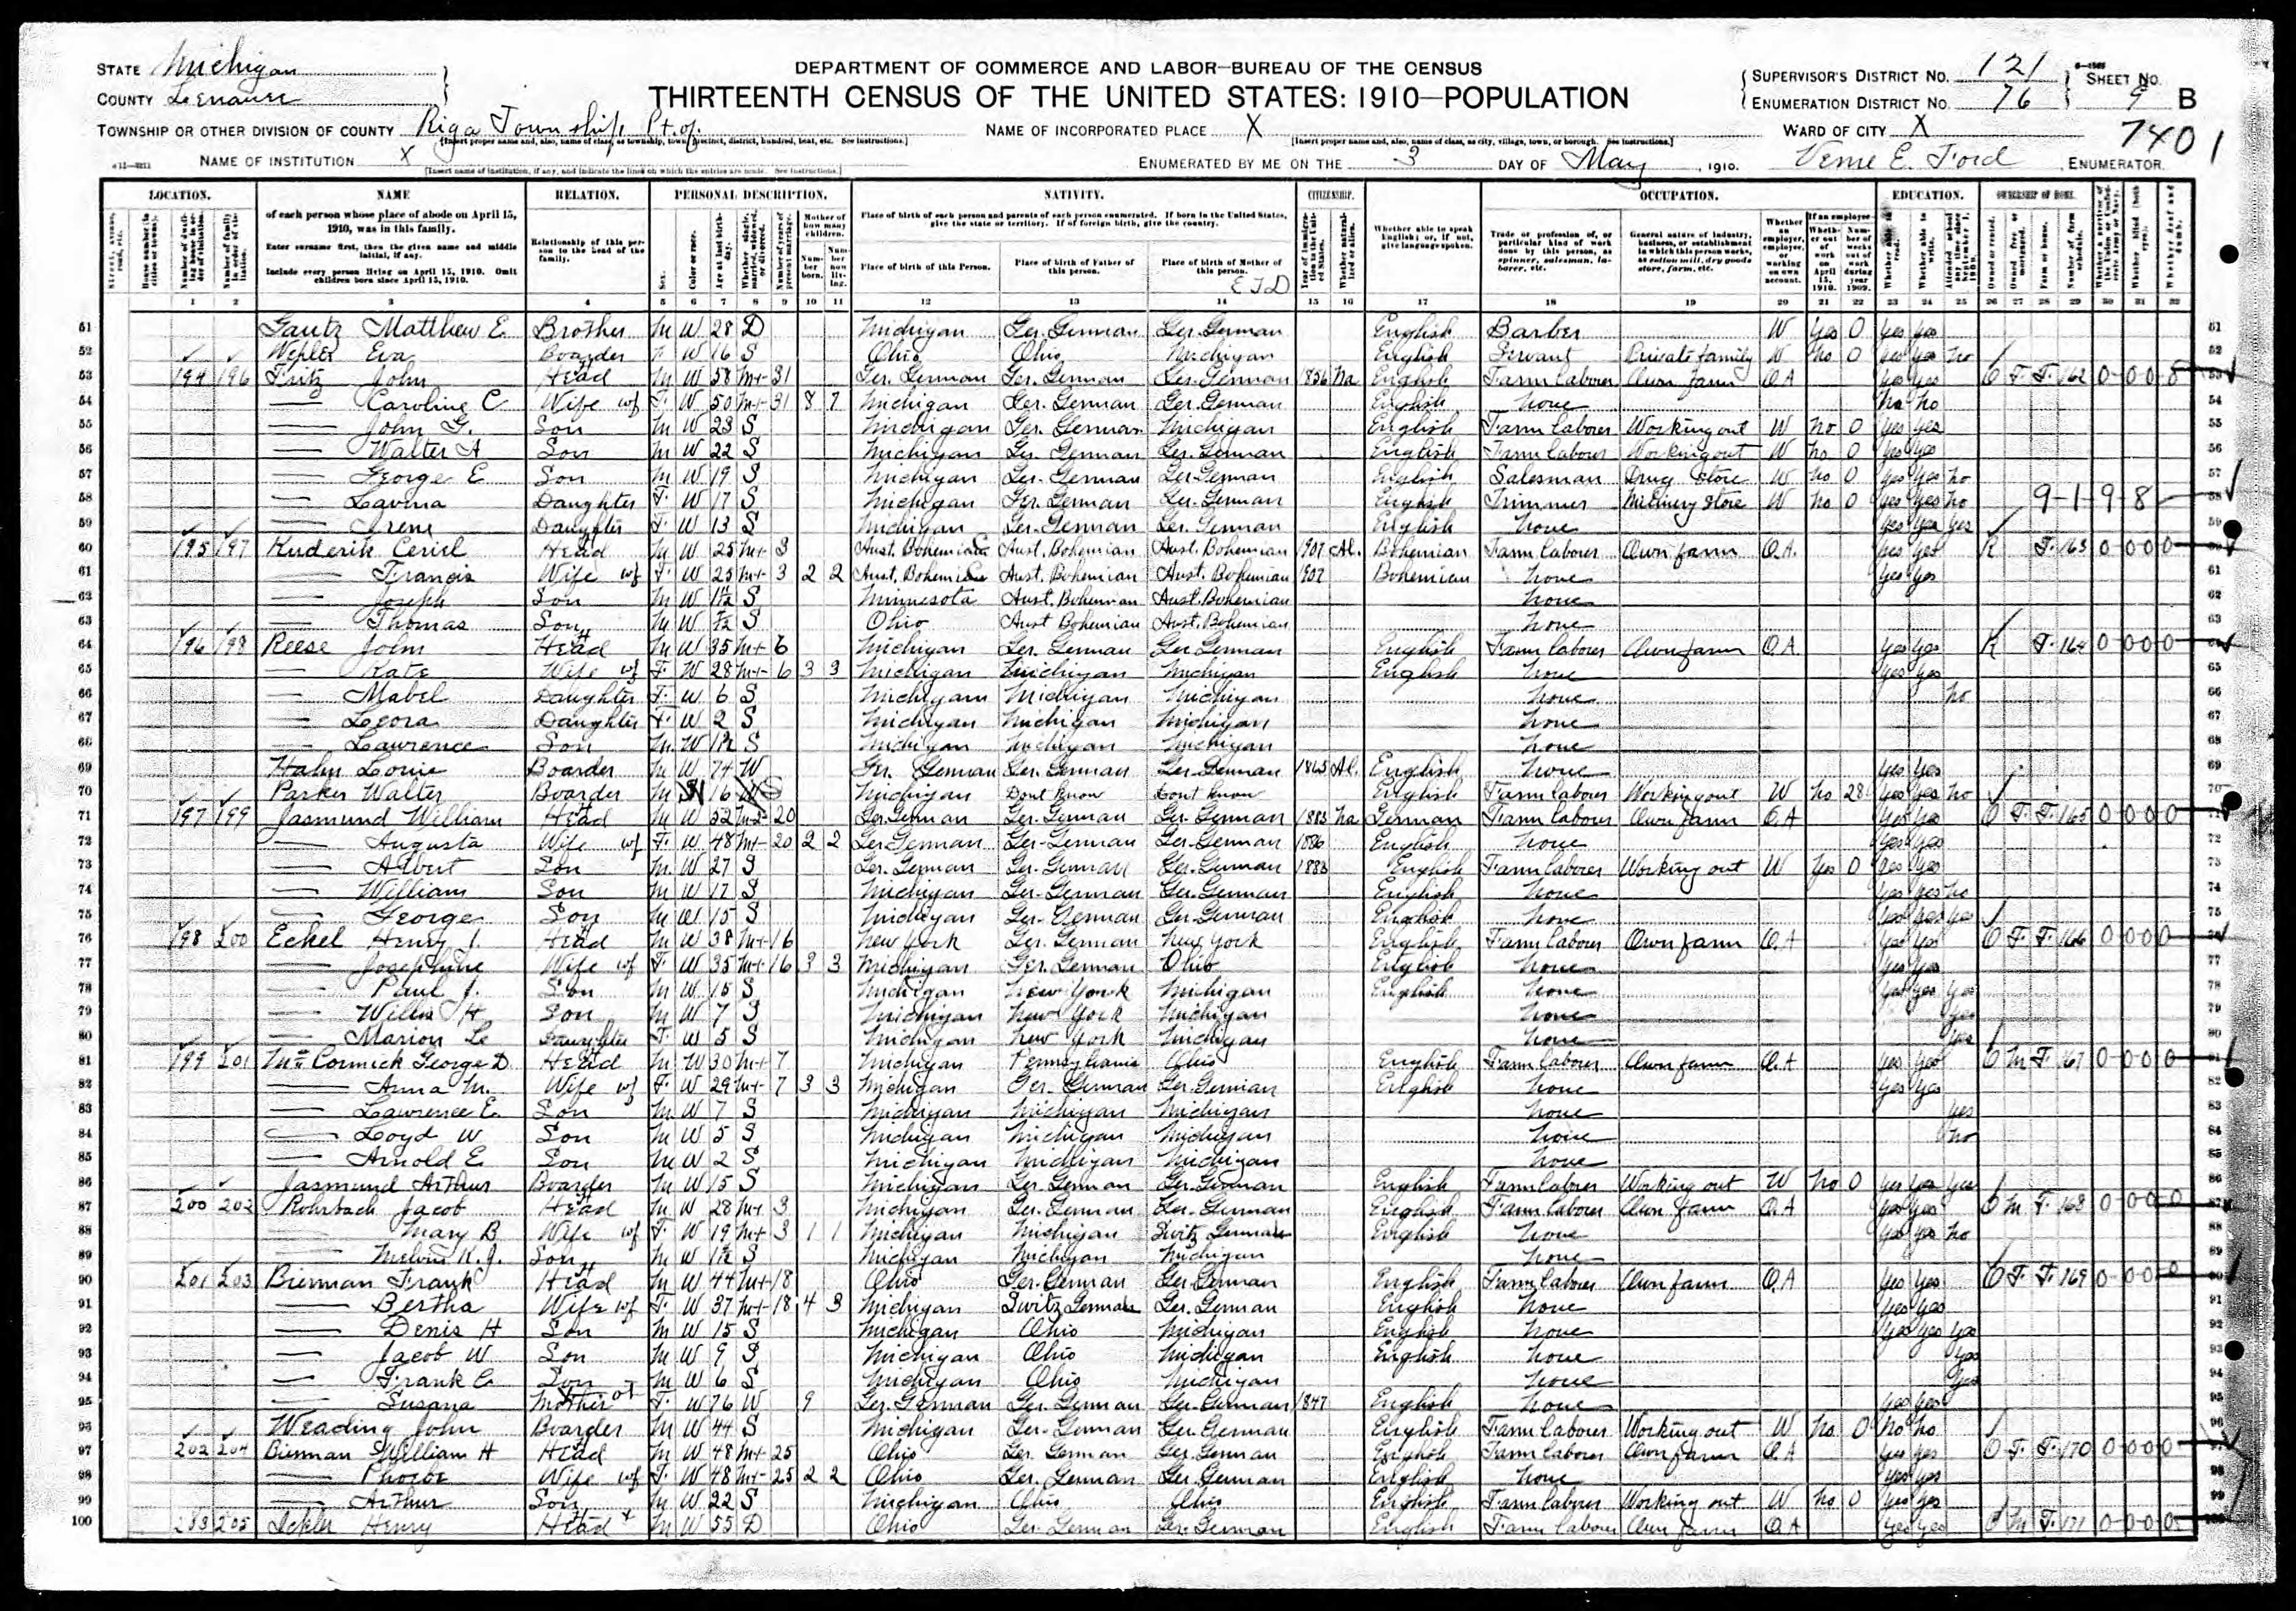 DEPARTMENT OF COMMERCE AND LABOR—BUREAU OF THE CENSUS
THIRTEENTH CENSUS OF THE UNITED STATES: 1910—POPULATION
STATE Michigan
COUNTY Lenawee
SUPERVISOR'S DISTRICT NO. 121
ENUMERATION DISTRICT NO. 76
SHEET NO. 9 B
7401
TOWNSHIP OR OTHER DIVISION OF COUNTY Riga Township Pt. of.
NAME OF INCORPORATED PLACE X
WARD OF CITY X
NAME OF INSTITUTION X
ENUMERATED BY ME ON THE 3 DAY OF May, 1910. Verne E. Ford, ENUMERATOR.
LOCATION. NAME RELATION. PERSONAL DESCRIPTION. NATIVITY. CITIZENSHIP. OCCUPATION. EDUCATION. OWNERSHIP OF HOME.
of each person whose place of abode on April 15, 1910, was in this family.
Enter surname first, then the given name and middle initial, if any.
Include every person living on April 15, 1910. Omit children born since April 15, 1910.
Relationship of this person to the head of the family.
Place of birth of each person and parents of each person enumerated. If born in the United States, give the state or territory. If of foreign birth, give the country.
Place of birth of this Person. Place of birth of Father of this person. Place of birth of Mother of this person.
E J D
Whether able to speak English; or, if not, give language spoken.
1 2 3 4 5 6 7 8 9 10 11 12 13 14 15 16 17 18 19 20 21 22 23 24 25 26 27 28 29 30 31 32
51 Matthew E. Brother M W 28 D Michigan Ger. German Ger. German English Barber W Yes 0 Yes Yes
52 Eva Boarder W 16 S Ohio Ohio Michigan English Servant Private family W No 0 Yes Yes No
53 194 196 Fritz John Head M W 58 M1 31 Ger. German Ger. German Ger. German 1856 Na English Farm laborer Own farm O.A Yes Yes O F F 162 0 0 0 0
54 Caroline C Wife F W 50 M1 31 8 7 Michigan Ger. German Ger. German English None No No
55 John G. Son M W 23 S Michigan Ger. German Michigan English Farm laborer Working out W No 0 Yes Yes
56 Walter A Son M W 22 S Michigan Ger. German Ger. German English Farm laborer Working out W No 0 Yes Yes
57 George E Son M W 19 S Michigan Ger. German Ger. German English Salesman Drug Store W No 0 Yes Yes No
58 Lavina Daughter F W 17 S Michigan Ger. German Ger. German English Trimmer Milinery Store W No 0 Yes Yes No 9-1-9-8
59 Irene Daughter F W 13 S Michigan Ger. German Ger. German English None Yes Yes Yes
60 195 197 Head M W 25 M1 3 Aust. Bohemian Aust. Bohemian Aust. Bohemian 1907 Al. Bohemian Farm laborer Own farm O.A. Yes Yes R F 163 0 0 0 0
61 Francis Wife F W 25 M1 3 2 2 Aust. Bohemian Aust. Bohemian Aust. Bohemian 1907 Bohemian None Yes Yes
62 Joseph Son M W S Minnesota Aust. Bohemian Aust. Bohemian None
63 Thomas Son M W S Ohio Aust Bohemian Aust. Bohemian None
64 196 198 Reese John Head M W 35 M1 6 Michigan Ger. German Ger German English Farm laborer Own farm O.A. Yes Yes R F. 164 0 0 0 0
65 Kate Wife F W 28 M1 6 3 3 Michigan Michigan Michigan English None Yes Yes
66 Mabel Daughter F W 6 S Michigan Michigan Michigan None No
67 Leora Daughter F W 2 S Michigan Michigan Michigan None
68 Lawrence Son M W S Michigan Michigan Michigan None
69 Hahn Louie Boarder M W 74 W Ger. German Ger. German Ger. German 1865 Al. English None Yes Yes
70 Parker Walter Boarder M W 16 S Michigan Dont Know Dont Know English Farm laborer Working out W No 28 Yes Yes No
71 197 199 Jasmund William Head M W 52 M2 20 Ger. German Ger. German Ger. German 1883 Na German Farm laborer Own farm O.A Yes Yes O F F 165 0 0 0 0
72 Augusta Wife F W 48 M1 20 2 2 Ger German Ger. German Ger. German 1886 English None Yes Yes
73 Albert Son M W 27 S Ger. German Ger. German Ger. German 1883 English Farm laborer Working out W Yes 0 Yes Yes
74 William Son M W 17 S Michigan Ger. German Ger. German English None Yes Yes No
75 George Son M W 15 S Michigan Ger. German Ger. German English None Yes Yes Yes
76 198 200 Eckel Henry J. Head M W 38 M1 16 New York Ger. German New York English Farm laborer Own farm O.A Yes Yes O F F 166 0 0 0 0
77 Josephine Wife F W 35 M1 16 3 3 Michigan Ger. German Ohio English None Yes Yes
78 Paul J. Son M W 15 S Michigan New York Michigan English None Yes Yes Yes
79 Willis H Son M W 7 S Michigan New York Michigan None Yes
80 Marion Daughter F W 5 S Michigan New York Michigan None Yes
81 199 201 McCormick George D. Head M W 30 M1 7 Michigan Pennsylvania Ohio English Farm laborer Own farm O.A Yes Yes O M F. 167 0 0 0 0
82 Anna M. Wife F W 29 M1 7 3 3 Michigan Ger. German Ger. German English None Yes Yes
83 Lawrence E. Son M W 7 S Michigan Michigan Michigan None Yes
84 Loyd W Son M W 5 S Michigan Michigan Michigan None No
85 Arnold E Son M W 2 S Michigan Michigan Michigan None
86 Jasmund Arthur Boarder M W 15 S Michigan Ger. German Ger. German English Farm laborer Working out W No 0 Yes Yes Yes
87 200 202 Rohrbach Jacob Head M W 28 M1 3 Michigan Ger. German Ger. German English Farm laborer Own farm O.A Yes Yes O M F 168 0 0 0 0
88 Mary B Wife F W 19 M1 3 1 1 Michigan Michigan Switz German English None Yes Yes No
89 Melvin K. J. Son M W S Michigan Michigan Michigan None
90 201 203 Bierman Frank Head M W 44 M1 18 Ohio Ger. German Ger. German English Farm laborer Own farm O.A Yes Yes O F. F. 169 0 0 0 0
91 Bertha Wife F W 37 M1 18 4 3 Michigan Switz German Ger. German English None Yes Yes
92 Denis H Son M W 15 S Michigan Ohio Michigan English None Yes Yes Yes
93 Jacob W Son M W 9 S Michigan Ohio Michigan English None Yes
94 Frank C. Son M W 6 S Michigan Ohio Michigan None Yes
95 Susana Mother F W 76 W 9 Ger. German Ger. German Ger. German 1847 English None Yes Yes
96 Weading John Boarder M W 44 S Michigan Ger. German Ger. German English Farm laborer Working out W No 0 No No
97 202 204 Bierman William H Head M W 48 M1 25 Ohio Ger. German Ger. German English Farm laborer Own farm O.A Yes Yes O F. F. 170 0 0 0 0
98 Phoebe Wife F W 48 M1 25 2 2 Ohio Ger. German Ger. German English None Yes Yes
99 Arthur Son M W 22 S Michigan Ohio Ohio English Farm laborer Working out W No 0 Yes Yes
100 203 205 Henry Head M W 55 D Ohio Ger. German Ger. German English Farm laborer Own farm O.A Yes Yes O M F. 171 0 0 0 0